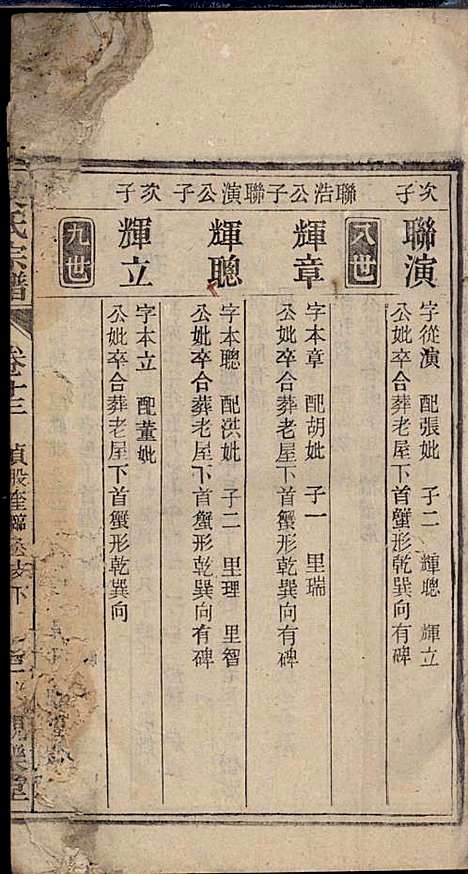 次子
聯演
字從演 配張妣 子二 輝聰 輝立
公妣卒合葬老屋下首蟹形乾巽向有碑
八世
聯浩公子
輝章
字本章 配胡妣 子一 里瑞
公妣卒合葬老屋下首蟹形乾巽向有碑
聯演公子
輝聰
字本聰 配洪妣 子二 里理 里智
公妣卒合葬老屋下首蟹形乾巽向有碑
次子
輝立
字本立 配董妣
公妣卒合葬老屋下首蟹形乾巽向
九世
氏宗譜
卷十三
貞股
下
堂